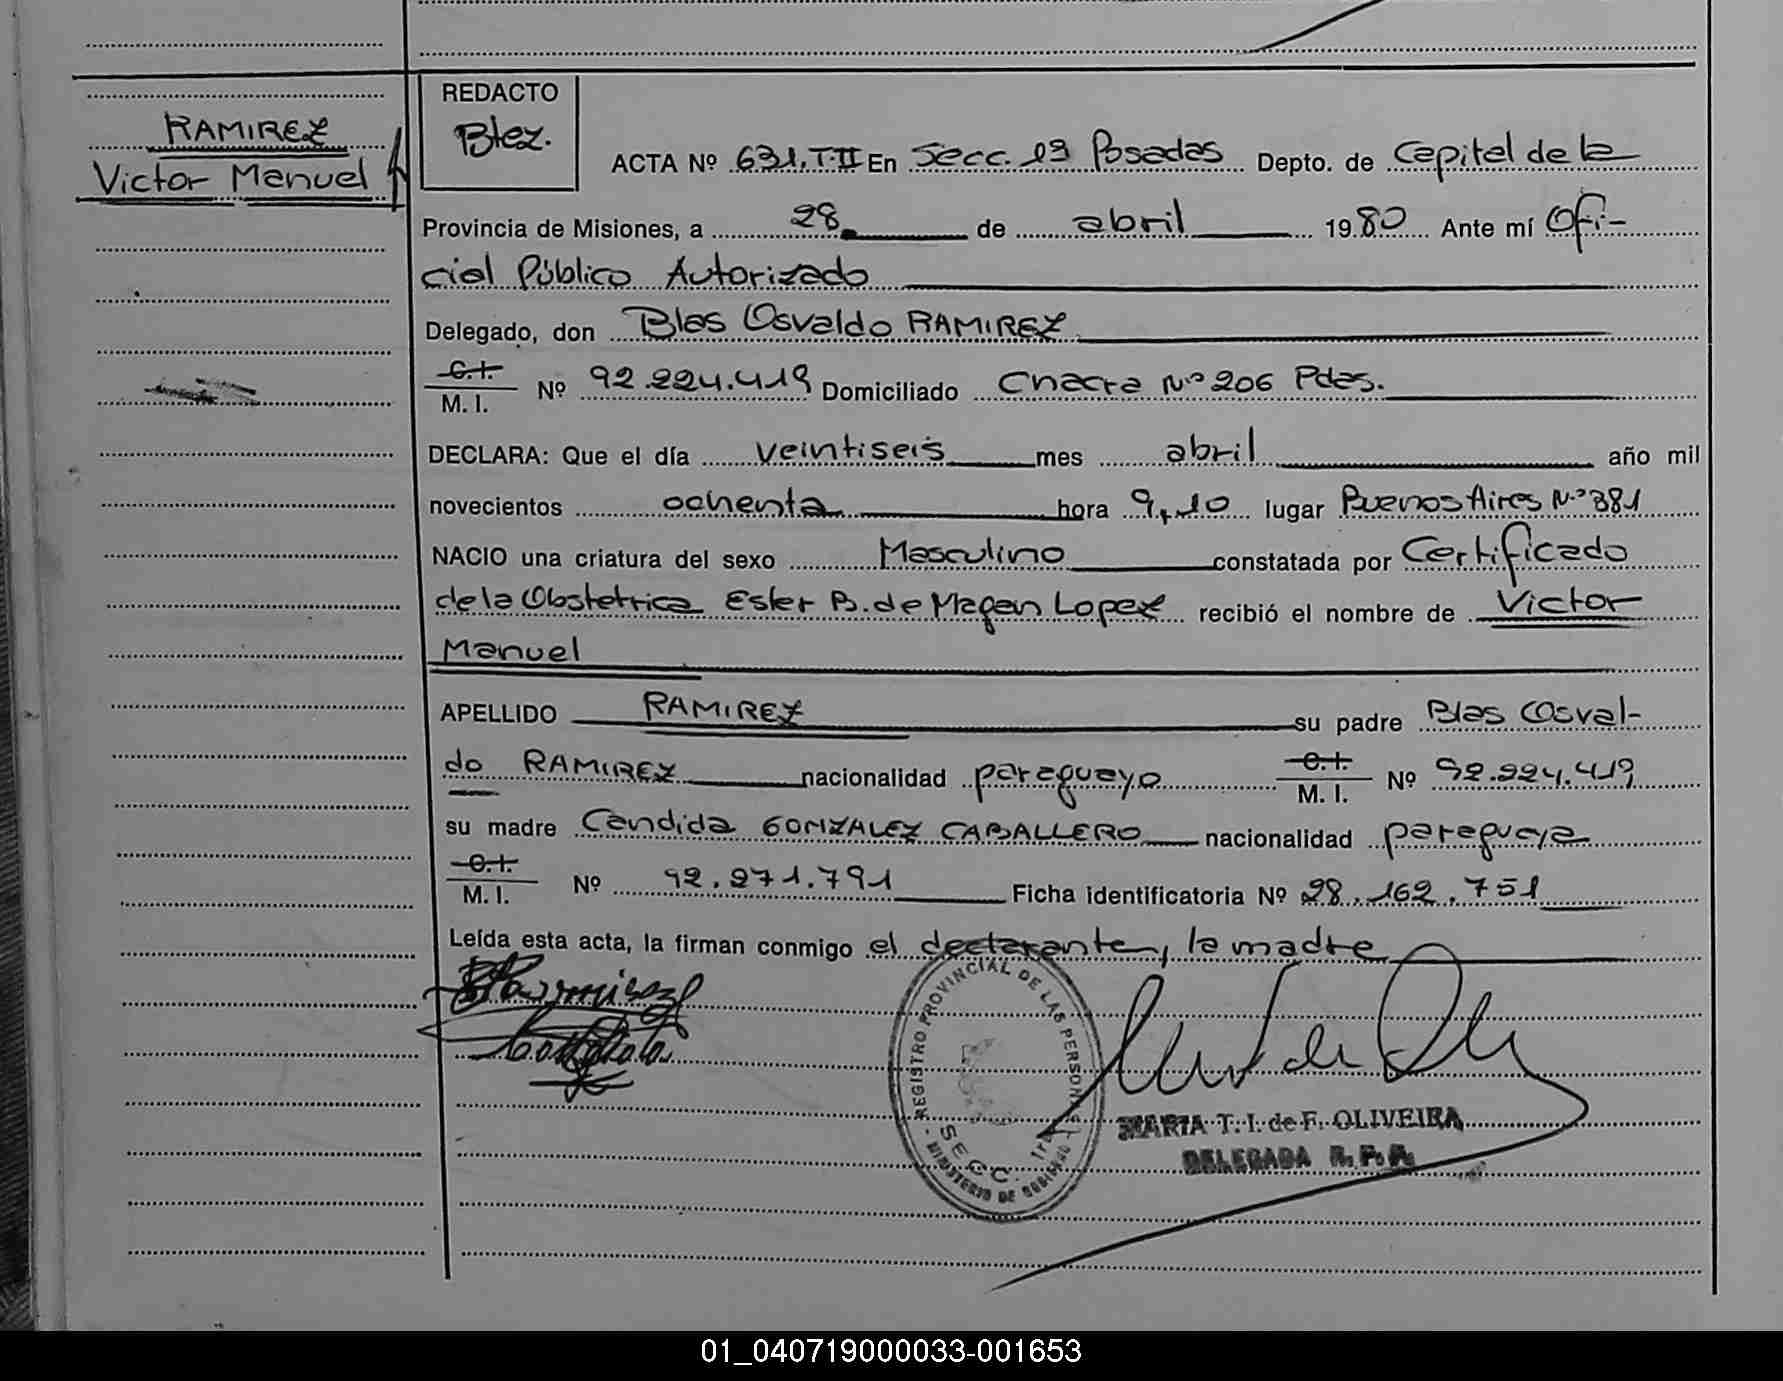 RAMIREZ
Victor Manuel
REDACTO
Btez.
ACTA Nº 631.T-II En Secc. 1ª Posadas Depto. de Capital de la
Provincia de Misiones, a 28 de abril 1980 Ante mí Ofi-
cial Público Autorizado
Delegado, don Blas Osvaldo RAMIREZ
C.I.
M. I. Nº 92.224.419 Domiciliado Chacra Nº 206 Pdas.
DECLARA: Que el día veintiseis mes abril año mil
novecientos ochenta hora 9,10 lugar Buenos Aires Nº 381
NACIO una criatura del sexo Masculino constatada por Certificado
de la Obstetrica Ester B. de Magan Lopez recibió el nombre de Victor
Manuel
APELLIDO RAMIREZ su padre Blas Osval-
do RAMIREZ nacionalidad paraguayo C.I. M. I. Nº 92.224.419
su madre Candida GONZALEZ CABALLERO nacionalidad paraguaya
C.I.
M. I. Nº 92.271.791 Ficha identificatoria Nº 28.162.751
Leída esta acta, la firman conmigo el declarante, la madre
REGISTRO PROVINCIAL DE LAS PERSONAS
SECC. 1ra
MINISTERIO DE GOBIERNO
MARIA T. I. de F. OLIVEIRA
DELEGADA R. P. P.
01_040719000033-001653